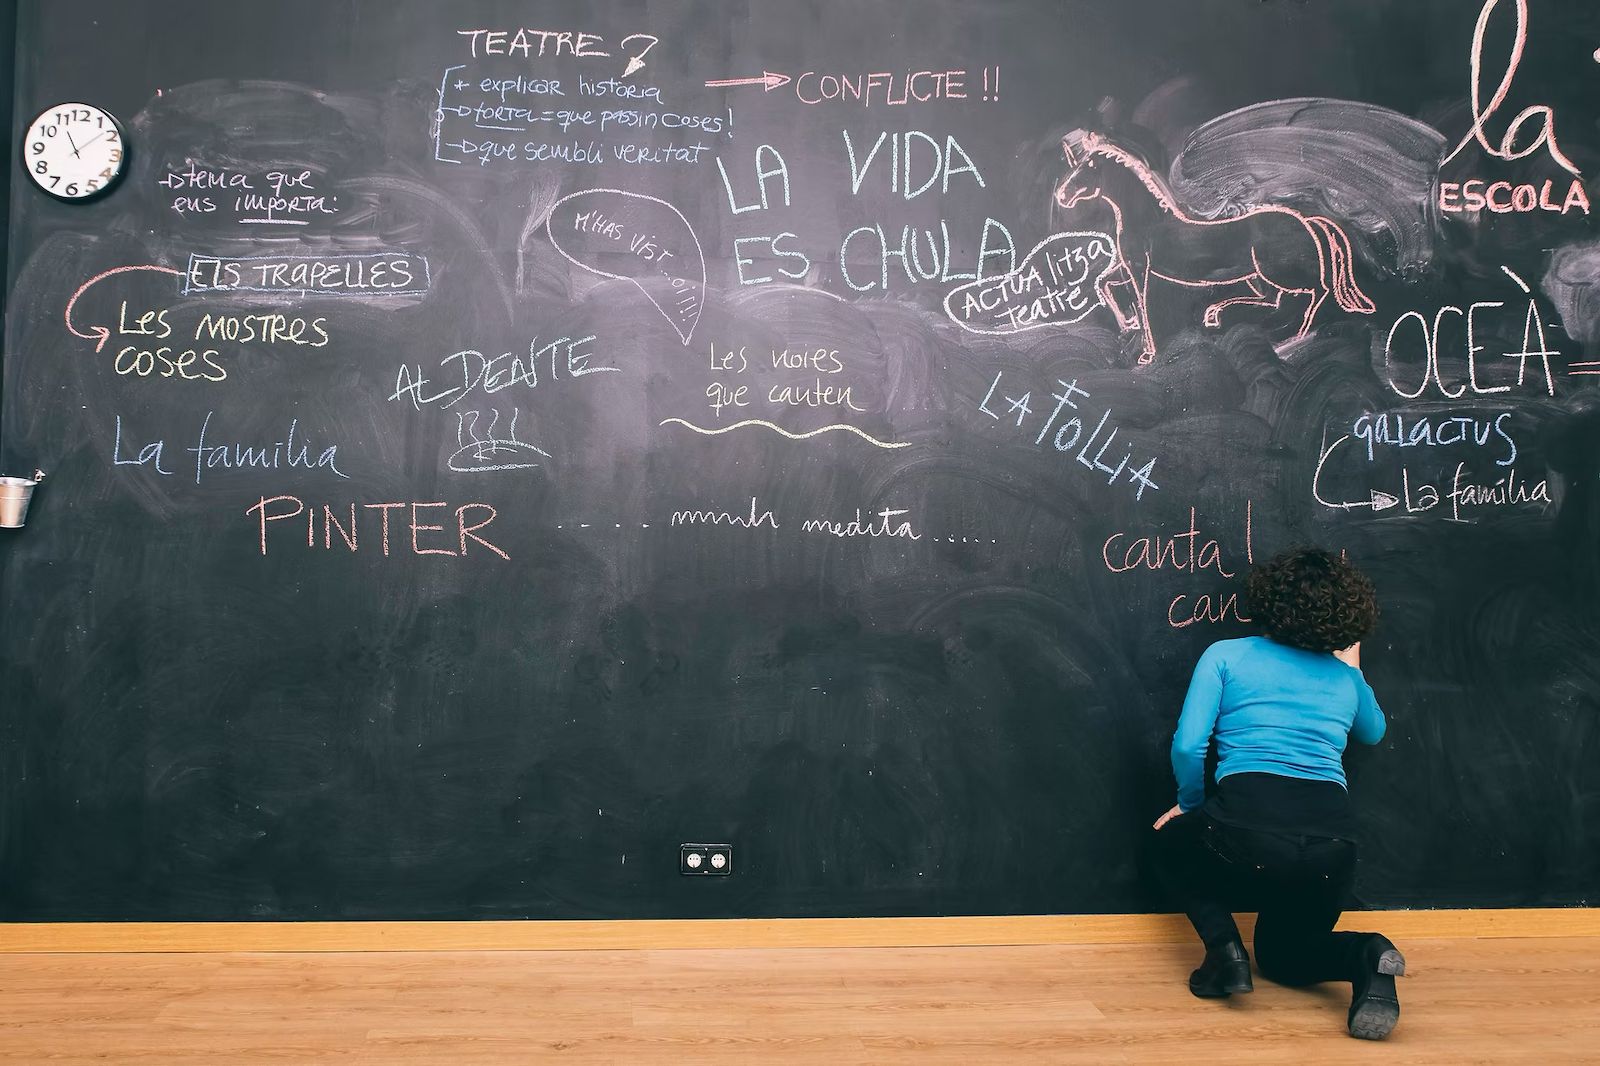 TEATRE?
+ explicar història
→ torta = que passin coses!
→ que sembli veritat
→ CONFLICTE !!
la
ESCOLA
11 12 1
10 2
9 3
8 4
7 6 5
→ tema que
ens importa:
ELS TRAPELLES
Les MOSTRES
COSES
M'HAS VIST...o!!!
LA VIDA
ES CHULA
ACTUAlitza
teatre
OCEÀ =
AL DENTE
Les noies
que canten
LA FOLLIA
GALACTUS
→ La família
La família
PINTER
..... medita .....
canta!
can